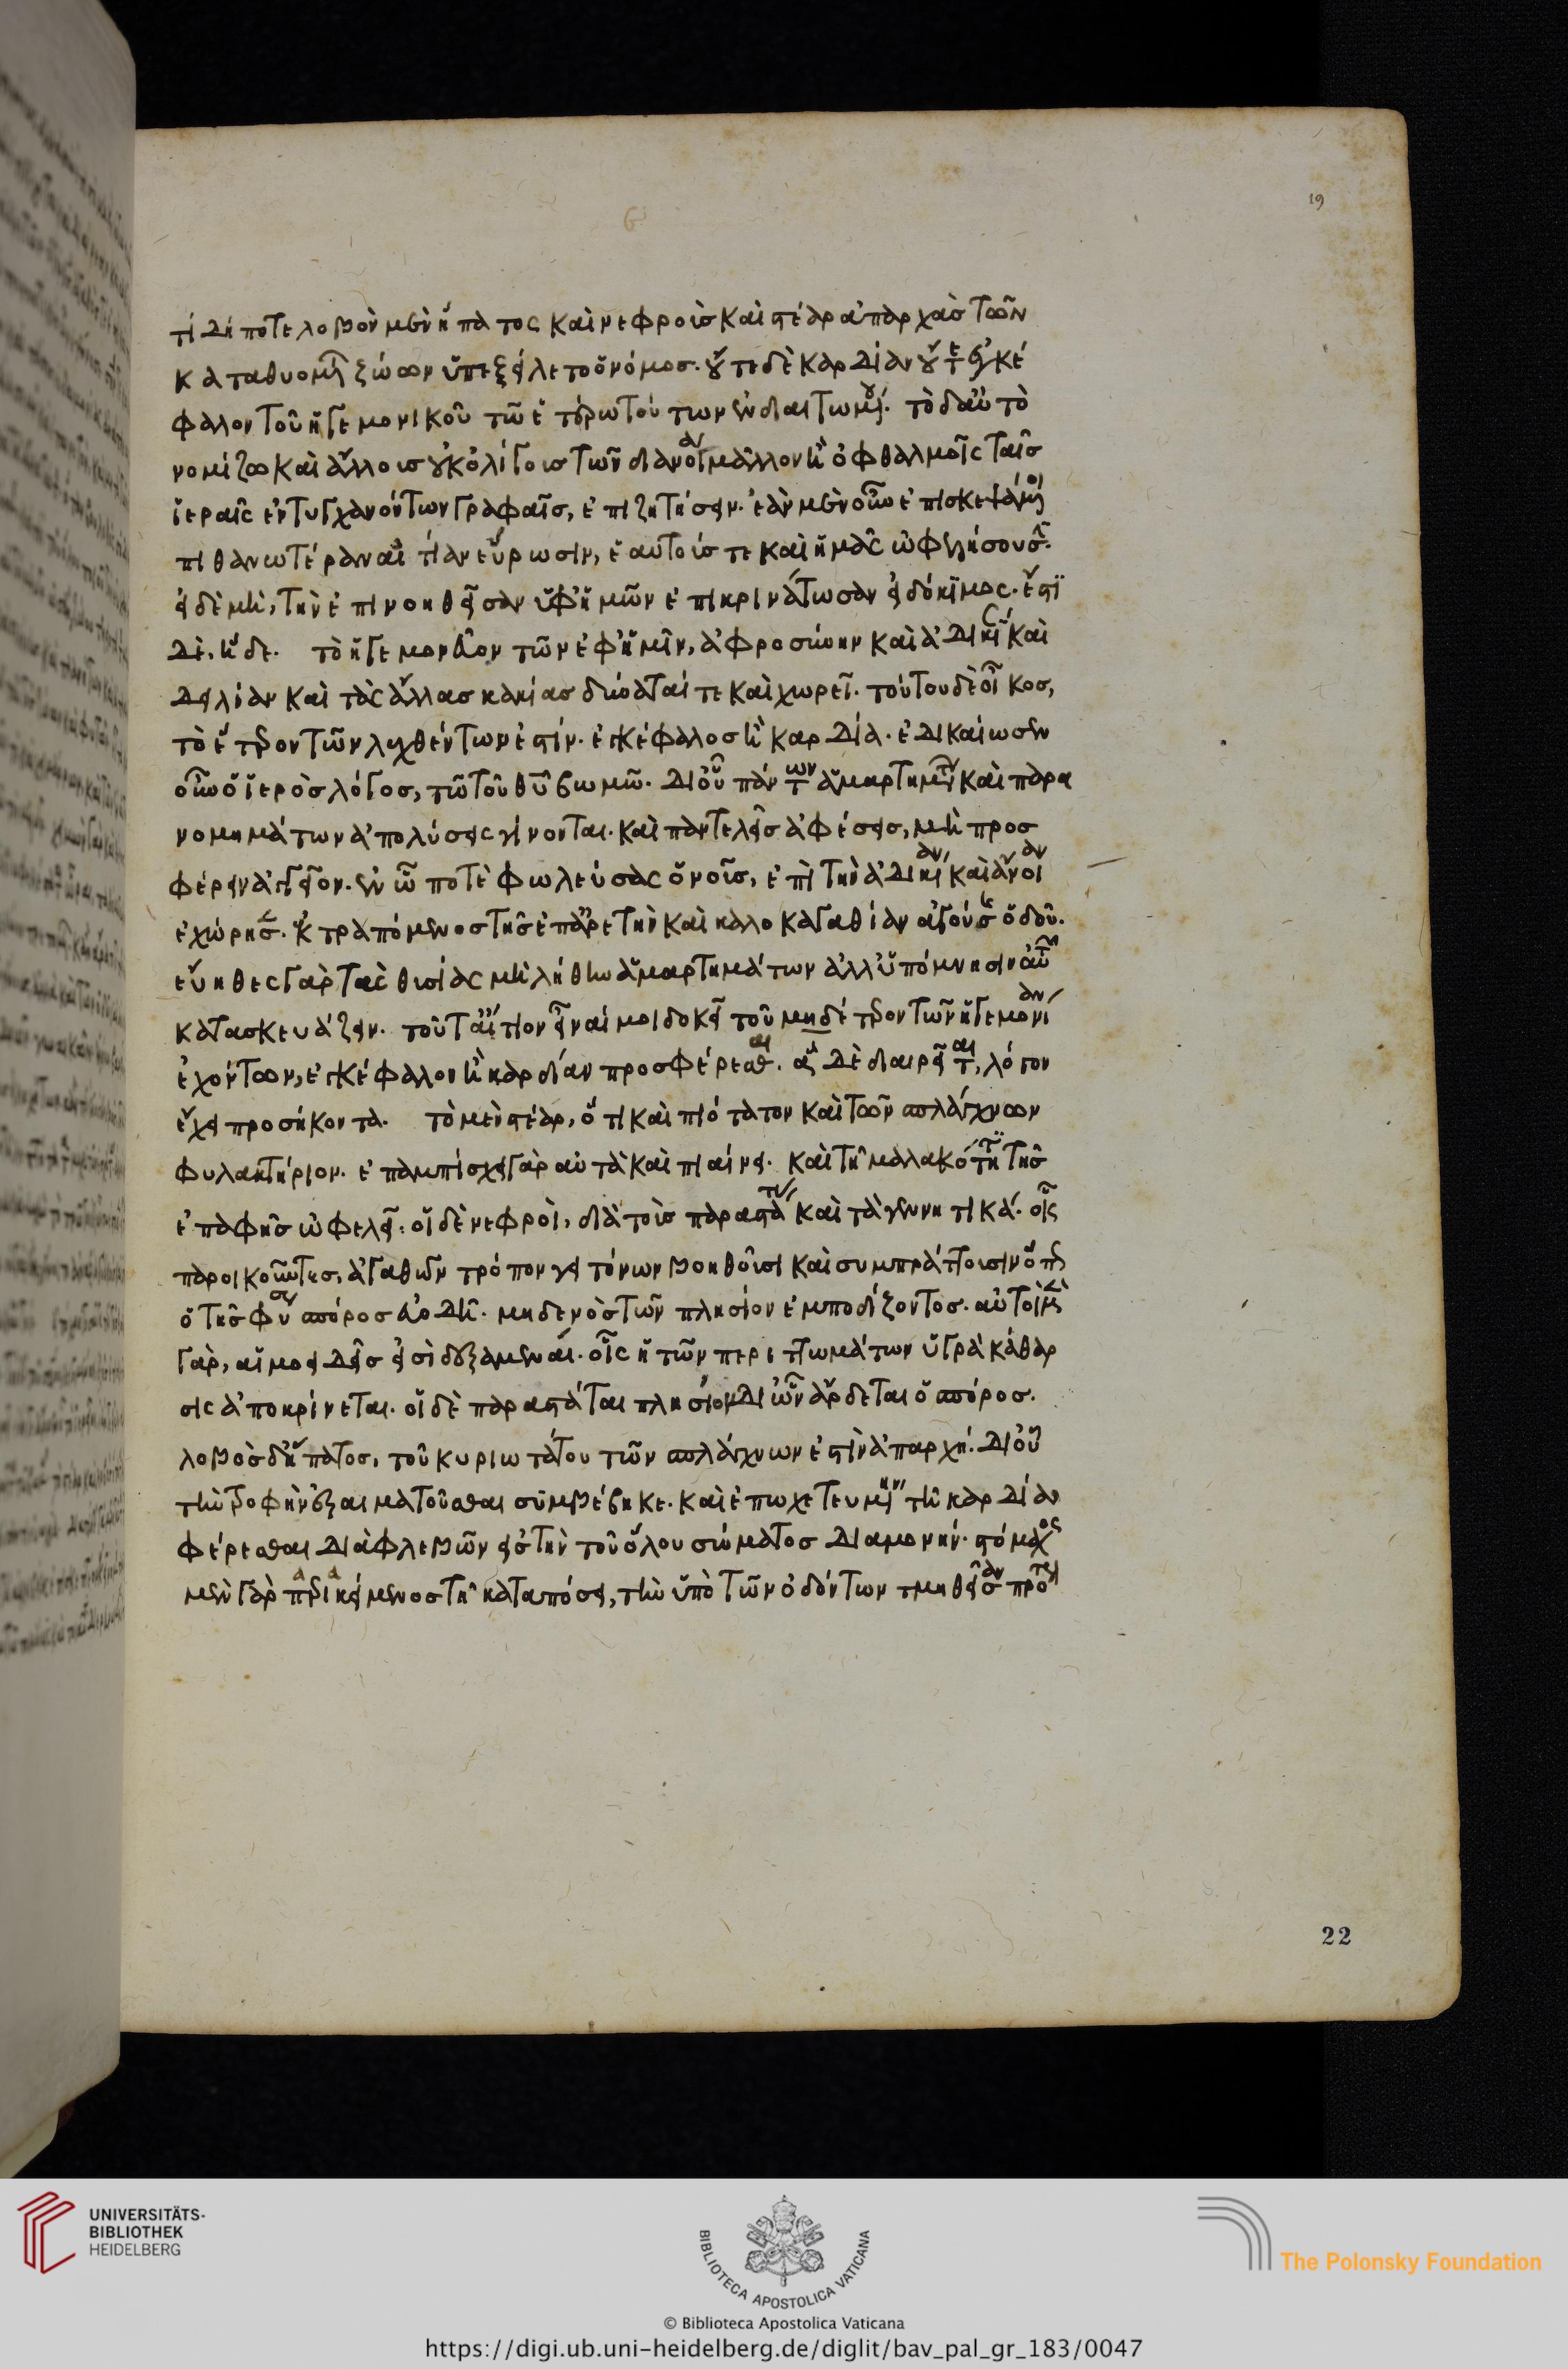 19
τί δήποτε λοβὸν μὲν ἥπατος καὶ νεφροὺς καὶ στέαρ ἀπαρχὰς τῶν
καταθυομένων ζώων ὑπεξείλετο ὁ νόμος. οὔτε δὲ καρδίαν οὔτε ἐγκέ
φαλον τοῦ ἡγεμονικοῦ τῶ ἑτέρω τούτων ἐνδιαιτωμένου. τὸ δ' αὐτὸ
νομίζω καὶ ἄλλοις οὐκ ὀλίγοις τῶν διανοία μᾶλλον ἢ ὀφθαλμοῖς ταῖς
ἱεραῖς ἐντυγχανόντων γραφαῖς, ἐπιζητήσειν. ἐὰν μὲν οὖν ἐπισκεψάμενοι
πιθανωτέραν αἰτίαν εὕρωσιν, ἑαυτούς τε καὶ ἡμᾶς ὠφελήσουσιν.
εἰ δὲ μὴ, τὴν ἐπινοηθεῖσαν ὑφ' ἡμῶν ἐπικρινάτωσαν εἰ δόκιμος. ἔστι
δὲ ἥδε. τὸ ἡγεμονικὸν τῶν ἐφ' ἡμῖν, ἀφροσύνην καὶ ἀδικίας καὶ
δειλίαν καὶ τὰς ἄλλας κακίας δύναταί τε καὶ χωρεῖ. τούτου δὲ οἶκος,
τὸ ἕτερον τῶν λεχθέντων ἐστίν. ἐγκέφαλος ἢ καρδία. ἐδικαίωσεν
οὖν ὁ ἱερὸς λόγος, τῶ τοῦ θεοῦ βωμῶ. δι' οὗ πάντων ἁμαρτημάτων καὶ παρα
νομημάτων ἀπολύσεις γίνονται. καὶ παντελεῖς ἀφέσεις, μὴ προσ
φέρειν ἀγγεῖον. ἐν ὧ ποτὲ φωλεύσας ὁ νοῦς, ἐπὶ τὴν ἀδικίαν καὶ ἄνοιαν
ἐχώρησεν. ἐκτραπόμενος τῆς ἐπ' ἀρετὴν καὶ καλοκαγαθίαν ἀγούσης ὁδοῦ.
εὔηθες γὰρ τὰς θυσίας μὴ λήθην ἁμαρτημάτων ἀλλ' ὑπόμνησιν αὐτῶν
κατασκευάζειν. τοῦτ' αἴτιον εἶναί μοι δοκεῖ τοῦ μηδέτερον τῶν ἡγεμονίαν
ἐχόντων, ἐγκέφαλον ἢ καρδίαν προσφέρεσθαι. ἃ δὲ διαιρεῖται, λόγον
ἔχει προσήκοντα. τὸ μὲν στέαρ, ὅτι καὶ πιότατον καὶ τῶν σπλάγχνων
φυλακτήριον. ἐπαμπίσχει γὰρ αὐτὰ καὶ πιαίνει. καὶ τῆ μαλακότητι τῆς
ἐπαφῆς ὠφελεῖ. οἱ δὲ νεφροὶ, διὰ τοὺς παραστάτας καὶ τὰ γεννητικά. οἷς
παροικοῦντες, ἀγαθῶν τρόπον γειτόνων βοηθοῦσι καὶ συμπράττουσιν ὅπως
ὁ τῆς φύσεως σπόρος εὐοδῆ. μηδενὸς τῶν πλησίον ἐμποδίζοντος. αὐτοὶ μὲν
γὰρ, αἱμοειδεῖς εἰσὶ δεξαμεναί. οἷς ἡ τῶν περιττωμάτων ὑγρὰ κάθαρ
σις ἀποκρίνεται. οἱ δὲ παραστάται πλησίον δι' ὧν ἄρδεται ὁ σπόρος.
λοβὸς δ' ἥπατος, τοῦ κυριωτάτου τῶν σπλάγχνων ἐστὶν ἀπαρχή. δι' οὗ
τὴν τροφὴν ἐξαιματοῦσθαι συμβέβηκε. καὶ ἐπωχετευμένην τῆ καρδία
φέρεσθαι διὰ φλεβῶν εἰς τὴν τοῦ ὅλου σώματος διαμονήν. στόμαχος
μὲν γὰρ παρακείμενος τῆ καταπόσει, τὴν ὑπὸ τῶν ὀδόντων τμηθεῖσαν πρότερον
22
UNIVERSITÄTS-
BIBLIOTHEK
HEIDELBERG
BIBLIOTECA APOSTOLICA VATICANA
The Polonsky Foundation
© Biblioteca Apostolica Vaticana
https://digi.ub.uni-heidelberg.de/diglit/bav_pal_gr_183/0047